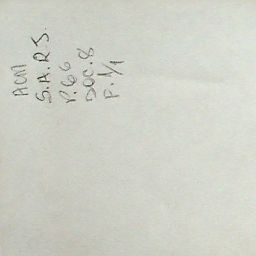 ACM
S.A.R.S.
P.66
DOC.8
F. 1/1